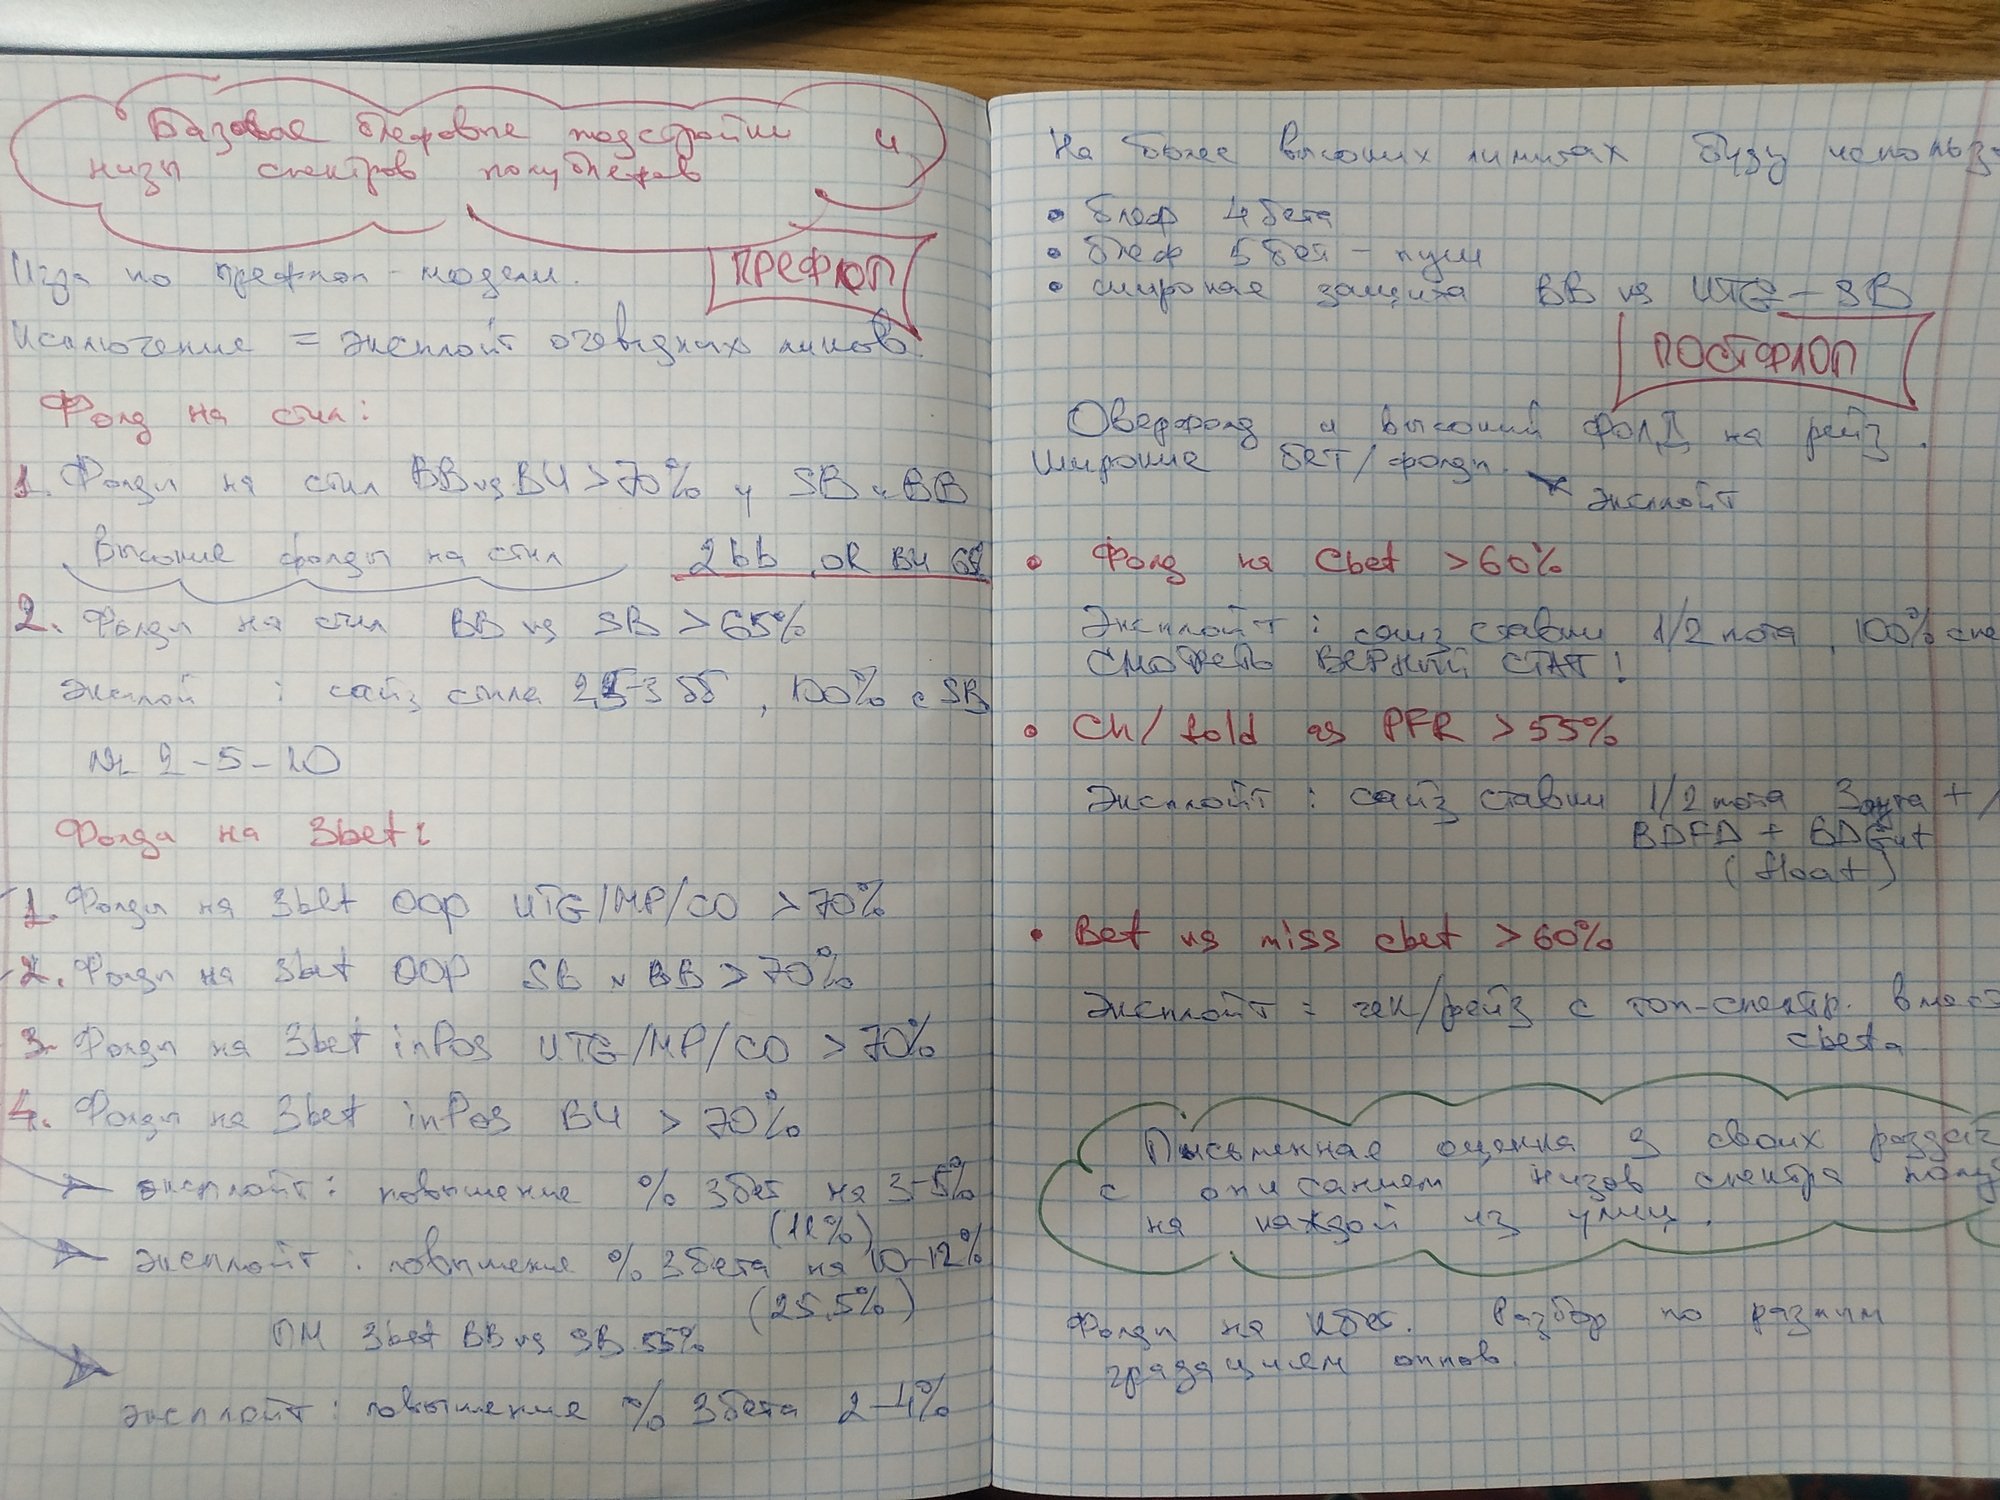 Базовые блефовые подстройки и
низы спектров полублефов
ПРЕФЛОП
Игра по префлоп-модели.
Исключение = эксплойт очевидных ликов.
Фолд на стил:
1. Фолды на стил BB vs BU >70% у SB и BB
Высокие фолды на стил 2bb OR BU
2. Фолды на стил BB vs SB >65%
Эксплой : сайз стила 2,5-3 бб , 100% с SB
NL 2-5-10
Фолды на 3bet:
1. Фолды на 3bet OOP UTG/MP/CO >70%
2. Фолды на 3bet OOP SB v BB >70%
3. Фолды на 3bet inPos UTG/MP/CO >70%
4. Фолды на 3bet inPos BU >70%
эксплойт: повышение % 3бет на 3-5%
(11%)
эксплойт: повышение % 3бета на 10-12%
(25.5%)
ПМ 3bet BB vs SB 55%
эксплойт: повышение % 3бета 2-4%
На более высоких лимитах буду использ
• блеф 4бета
• блеф 5бет-пуш
• широкая защита BB vs UTG-SB
ПОСТФЛОП
Оверфолд и высокий ФОЛД на рейз.
Широкие бет/фолды.
эксплойт
• Фолд на Cbet >60%
Эксплойт: сайз ставки 1/2 пота, 100% спе
СМОТРЕТЬ ВЕРНИЙ СТАТ!
• Ch/fold vs PFR >55%
Эксплойт: сайз ставки 1/2 пота +
BDFD + BDGut
(float)
• Bet vs miss cbet >60%
Эксплойт = чек/рейз с топ-спектр. вмест
cbeta
Письменная оценка 3 своих раздач
с описанием низов спектра полу
на каждой из улиц.
Фолды на Разбор по разным
градациям оппов.